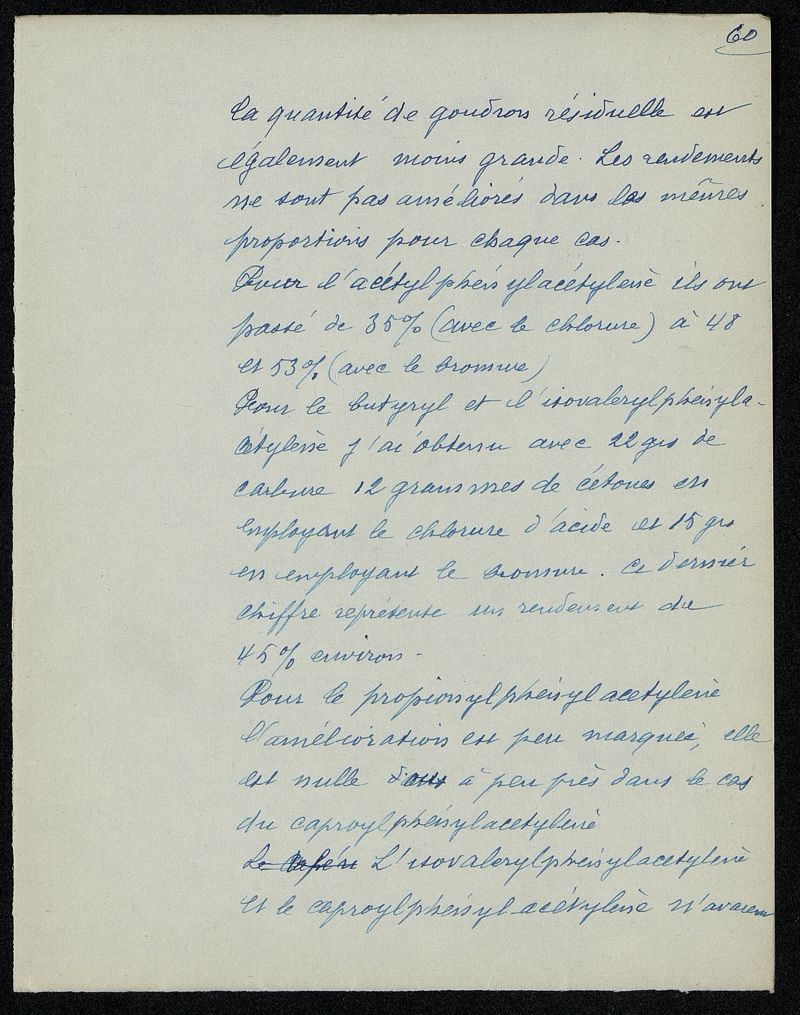 60
La quantité de goudron résiduelle est
également moins grande. Les rendements
ne sont pas améliorés dans les mêmes
proportions pour chaque cas.
Pour l'acétylphénylacétylène ils ont
passé de 35% (avec le chlorure) à 48
et 53% (avec le bromure)
Pour le butyryl et l'isovalerylphényla-
cétylène j'ai obtenu avec 22 grs de
carbure 12 grammes de cétones en
employant le chlorure d'acide et 15 grs
en employant le bromure. Ce dernier
chiffre représente un rendement de
45% environ -
Pour le propionylphénylacetylène
l'amélioration est peu marquée, elle
est nulle à peu près dans le cas
du caproylphénylacetylène
L'isovalerylphénylacetylène
et le caproylphénylacétylène n'avaient